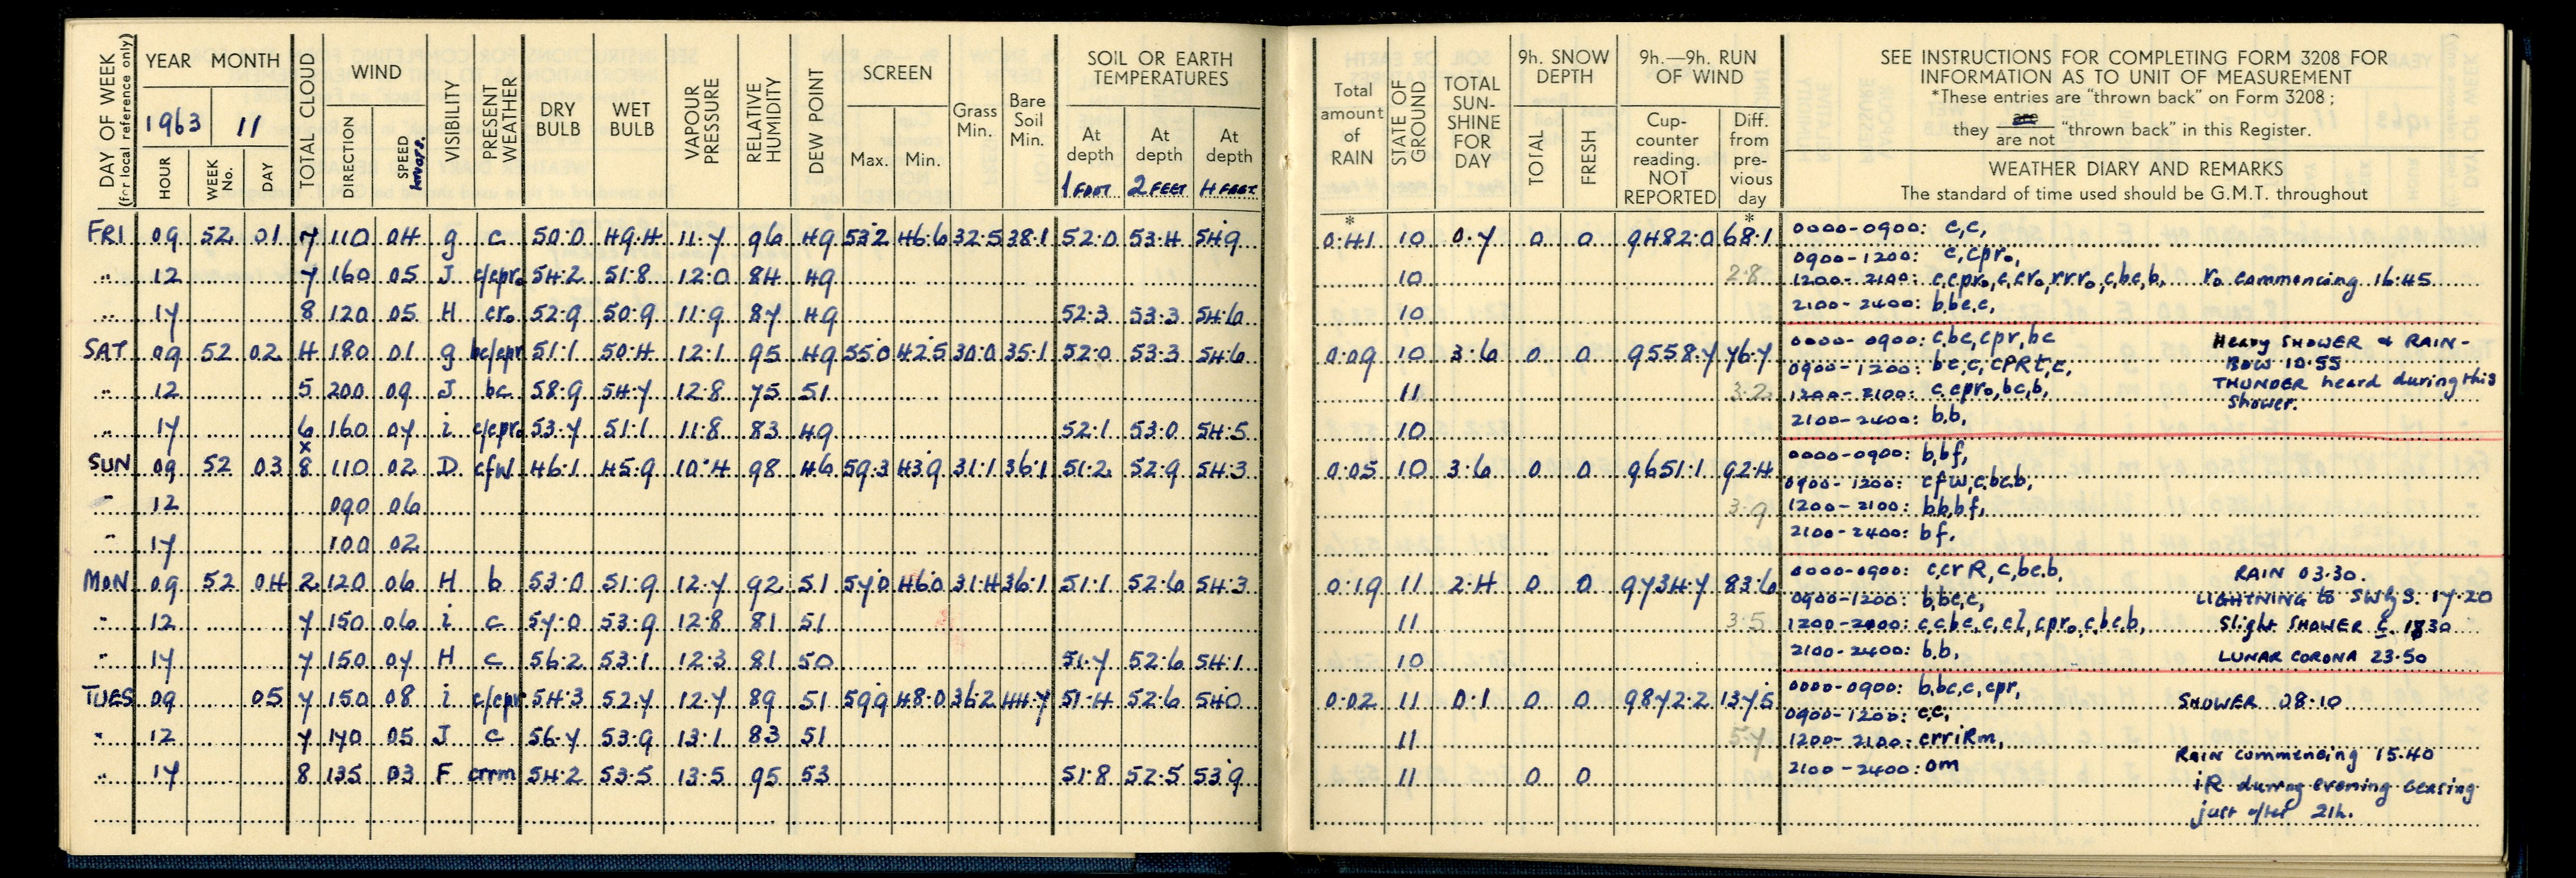 DAY OF WEEK (for local reference only) YEAR MONTH 1963 11 HOUR WEEK No. DAY TOTAL CLOUD WIND DIRECTION SPEED knots. VISIBILITY PRESENT WEATHER DRY BULB WET BULB VAPOUR PRESSURE RELATIVE HUMIDITY DEW POINT SCREEN Max. Min. Grass Min. Bare Soil Min. SOIL OR EARTH TEMPERATURES At depth 1 FOOT At depth 2 FEET At depth 4 FEET
FRI 09 52 01 7 110 04 g c 50.0 49.4 11.7 96 49 53.2 46.6 32.5 38.1 52.0 53.4 54.9
" 12 7 160 05 J c/cpr₀ 54.2 51.8 12.0 84 49
" 17 8 120 05 H cr₀ 52.9 50.9 11.9 87 49 52.3 53.3 54.6
SAT 09 52 02 4 180 01 g bc/cpr 51.1 50.4 12.1 95 49 55.0 42.5 30.0 35.1 52.0 53.3 54.6
" 12 5 200 09 J bc 58.9 54.7 12.8 75 51
" 17 6 160 07 i c/cpr₀ 53.7 51.1 11.8 83 49 52.1 53.0 54.5
x
SUN 09 52 03 8 110 02 D cfw 46.1 45.9 10.4 98 46 59.3 43.9 31.1 36.1 51.2 52.9 54.3
" 12 090 06
" 17 100 02
MON 09 52 04 2 120 06 H b 53.0 51.9 12.7 92 51 57.0 46.0 31.4 36.1 51.1 52.6 54.3
" 12 7 150 06 i c 57.0 53.9 12.8 81 51
" 17 7 150 07 H c 56.2 53.1 12.3 81 50 51.7 52.6 54.1
TUES 09 05 7 150 08 i c/cpr 54.3 52.7 12.7 89 51 59.9 48.0 36.2 44.7 51.4 52.6 54.0
" 12 7 170 05 J c 56.7 53.9 13.1 83 51
" 17 8 135 03 F crrm 54.2 53.5 13.5 95 53 51.8 52.5 53.9
Total amount of RAIN STATE OF GROUND TOTAL SUN-SHINE FOR DAY 9h. SNOW DEPTH TOTAL FRESH 9h.—9h. RUN OF WIND Cup-counter reading. NOT REPORTED Diff. from pre-vious day
SEE INSTRUCTIONS FOR COMPLETING FORM 3208 FOR
INFORMATION AS TO UNIT OF MEASUREMENT
*These entries are "thrown back" on Form 3208;
they are are not "thrown back" in this Register.
WEATHER DIARY AND REMARKS
The standard of time used should be G.M.T. throughout
* *
0.41 10 0.7 0 0 9482.0 68.1 0000-0900: c,c,
0900-1200: c,cpr₀,
10 2.8 1200-2100: c,cpr₀,c,cr₀,r.r.r₀,c,bc,b, r₀ commencing 16.45
10 2100-2400: b,bc,c,
0.09 10 3.6 0 0 9558.7 76.7 0000-0900: c,bc,cpr,bc Heavy SHOWER & RAIN-
0900-1200: bc,c,cPRt,c, BOW 10.55
11 3.2 1200-2100: c,cpr₀,bc,b, THUNDER heard during this
shower.
10 2100-2400: b,b,
0.05 10 3.6 0 0 9651.1 92.4 0000-0900: b,bf,
0900-1200: cfw,c,bc,b,
3.9 1200-2100: b,b,bf,
2100-2400: bf,
0.19 11 2.4 0 0 9734.7 83.6 0000-0900: c,cr R,c,bc,b, RAIN 03.30.
0900-1200: b,bc,c, LIGHTNING to SW & S. 17.20
11 3.5 c,c,bc,c,cl,cpr₀,c,bc,b, Slight SHOWER C. 1830
10 2100-2400: b,b, LUNAR CORONA 23.50
0.02 11 0.1 0 0 9872.2 137.5 0000-0900: b,bc,c,cpr, SHOWER 08.10
0900-1200: c,c,
11 5.7 1200-2100: crriRm,
RAIN commencing 15.40
11 0 0 2100-2400: om
iR during evening ceasing
just after 21h.